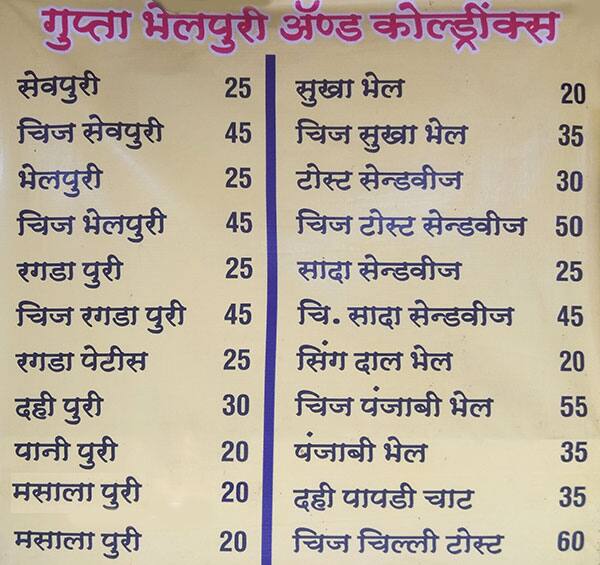 गुप्ता भेलपुरी ॲण्ड कोल्ड्रींक्स
सेवपुरी 25
चिज सेवपुरी 45
भेलपुरी 25
चिज भेलपुरी 45
रगडा पुरी 25
चिज रगडा पुरी 45
रगडा पेटीस 25
दही पुरी 30
पानी पुरी 20
मसाला पुरी 20
मसाला पुरी 20
सुखा भेल 20
चिज सुखा भेल 35
टोस्ट सेन्डवीज 30
चिज टोस्ट सेन्डवीज 50
सादा सेन्डवीज 25
चि. सादा सेन्डवीज 45
सिंग दाल भेल 20
चिज पंजाबी भेल 55
पंजाबी भेल 35
दही पापडी चाट 35
चिज चिल्ली टोस्ट 60